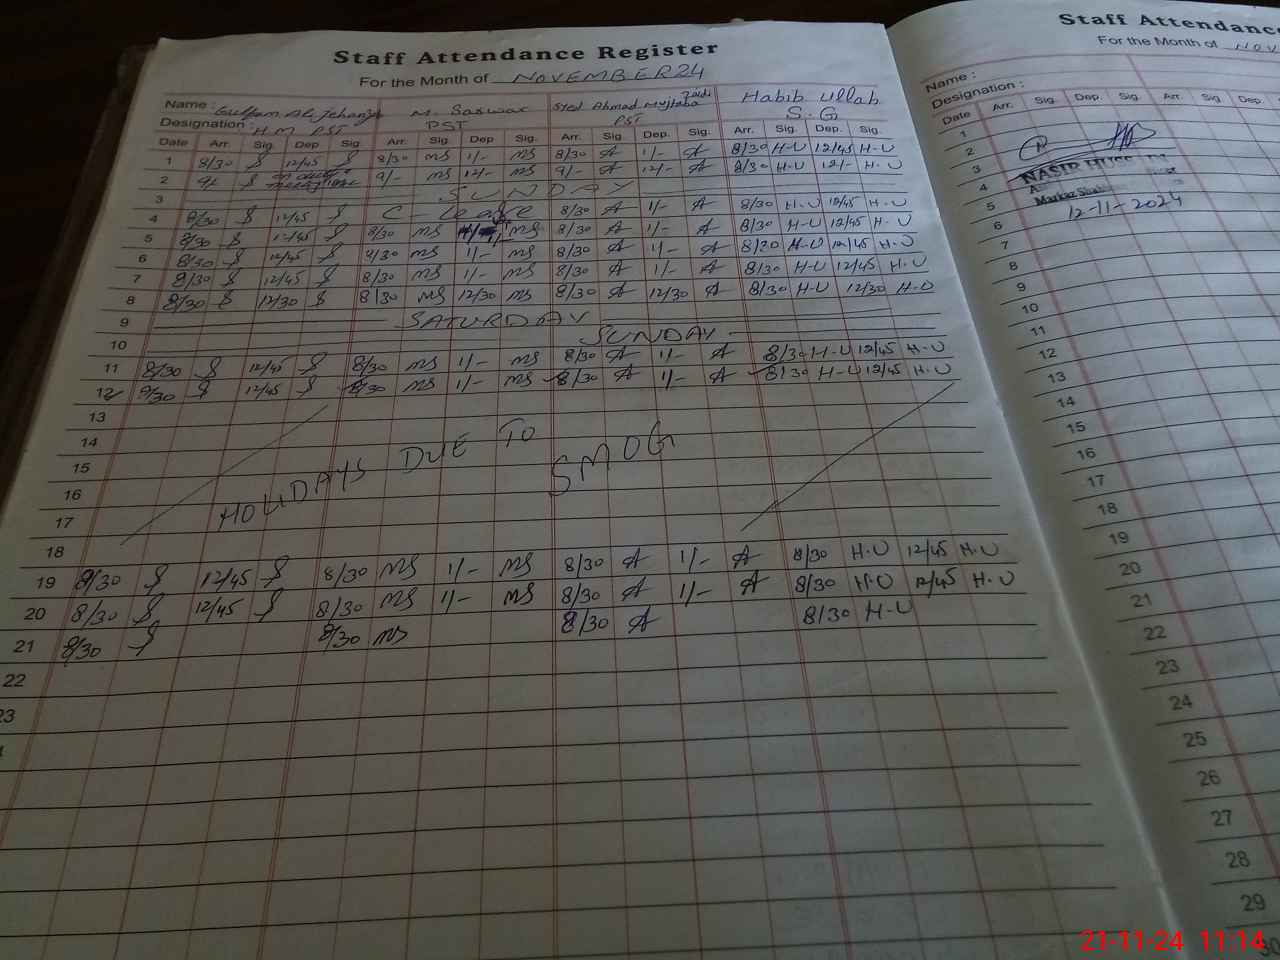 Staff Attendance Register
For the Month of NOVEMBER 24
Name : Gulfam Ali Jehangir M. Sarwar Syed Ahmad Mujtaba Zaidi Habib Ullah
Designation : H.M PST PST PST S.G
Date Arr. Sig. Dep Sig. Arr. Sig. Dep Sig. Arr. Sig. Dep. Sig. Arr. Sig. Dep. Sig.
1 8/30 12/45 8/30 MS 1/- MS 8/30 A 1/- A 8/30 H-U 12/45 H-U
2 9/- 9/- MS 12/- MS 9/- A 12/- A 8/30 H-U 12/- H-U
3 SUNDAY
4 8/30 12/45 C- Leave 8/30 A 1/- A 8/30 H.U 12/45 H.U
5 8/30 12/45 8/30 MS 1/- MS 8/30 A 1/- A 8/30 H-U 12/45 H-U
6 8/30 12/45 8/30 MS 1/- MS 8/30 A 1/- A 8/30 H-U 12/45 H-U
7 8/30 12/45 8/30 MS 1/- MS 8/30 A 1/- A 8/30 H-U 12/45 H-U
8 8/30 12/30 8/30 MS 12/30 MS 8/30 A 12/30 A 8/30 H-U 12/30 H-U
9 SATURDAY
10 SUNDAY
11 8/30 12/45 8/30 MS 1/- MS 8/30 A 1/- A 8/30 H-U 12/45 H-U
12 8/30 12/45 8/30 MS 1/- MS 8/30 A 1/- A 8/30 H-U 12/45 H-U
13
14
15
HOLIDAYS DUE TO SMOG
16
17
18
19 8/30 12/45 8/30 MS 1/- MS 8/30 A 1/- A 8/30 H.U 12/45 H.U
20 8/30 12/45 8/30 MS 1/- MS 8/30 A 1/- A 8/30 H.U 12/45 H.U
21 8/30 8/30 MS 8/30 A 8/30 H-U
22
23
Staff Attendance
For the Month of NOV
Name :
Designation :
Date Arr. Sig. Dep. Sig. Arr. Sig. Dep.
1
2
3 NASIR
4
5
6 12-11-2024
7
8
9
10
11
12
13
14
15
16
17
18
19
20
21
22
23
24
25
26
27
28
29
30
21-11-24 11:14